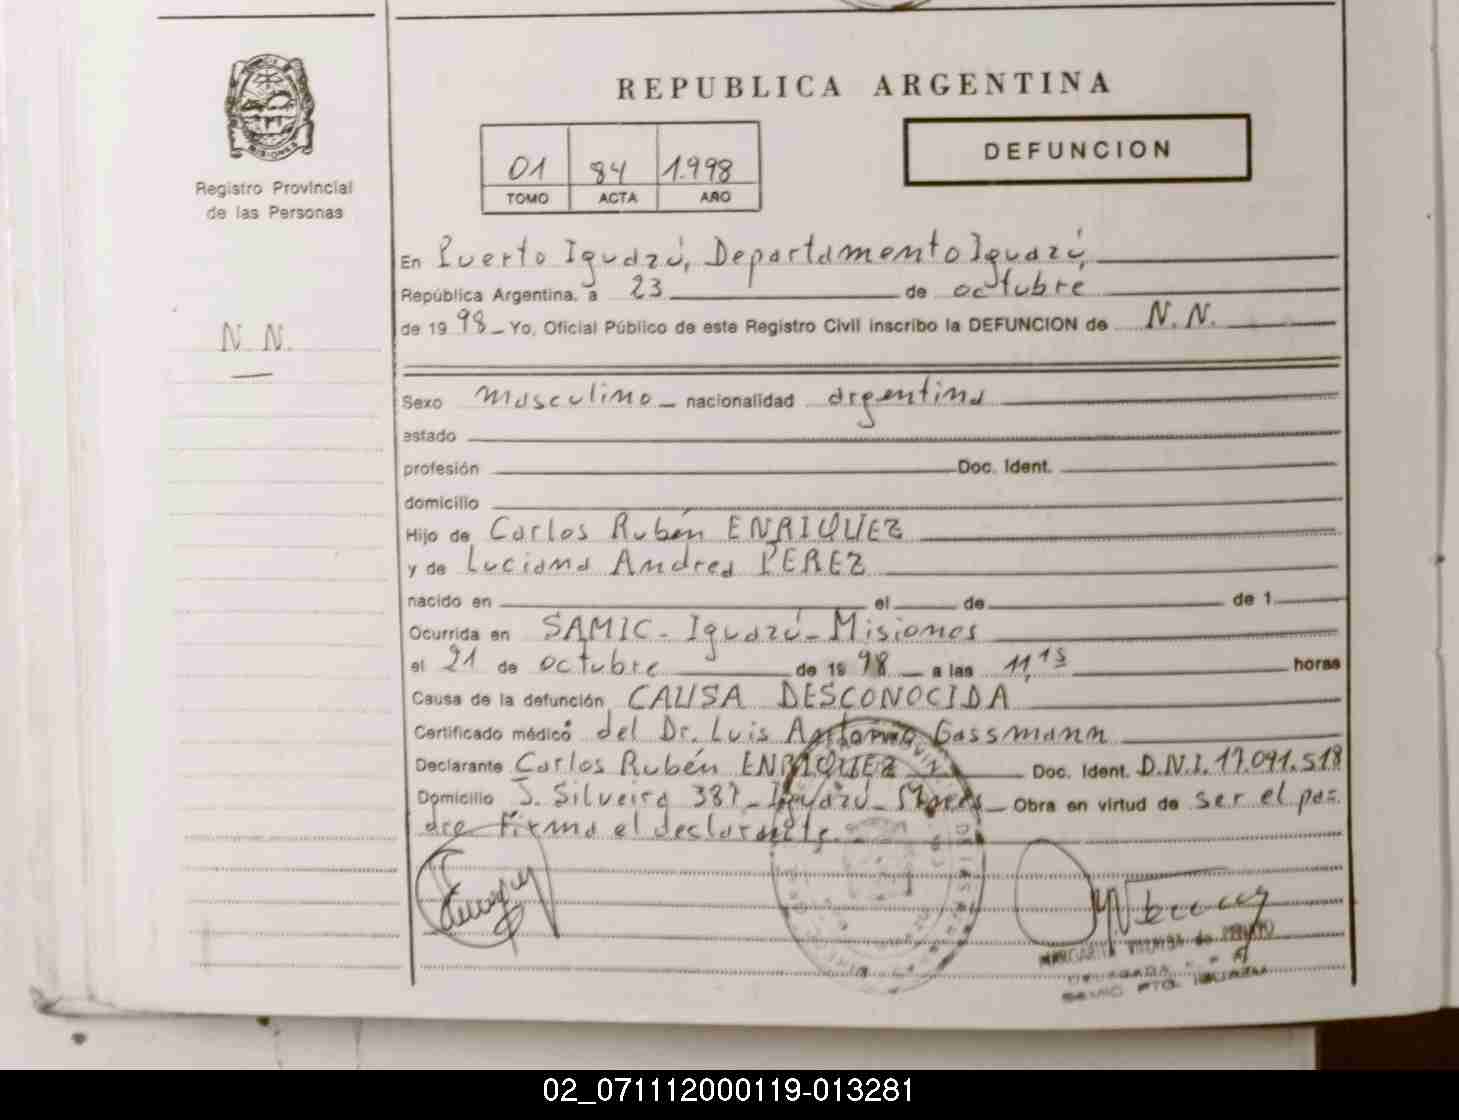 REPUBLICA ARGENTINA
MISIONES
Registro Provincial
de las Personas
01 84 1.998
TOMO ACTA AÑO
DEFUNCION
En Puerto Iguazú, Departamento Iguazú,
República Argentina, a 23 de octubre
de 1998 Yo, Oficial Público de este Registro Civil inscribo la DEFUNCION de N. N.
N. N.
Sexo masculino nacionalidad argentina
estado
profesión Doc. Ident.
domicilio
Hijo de Carlos Rubén ENRIQUEZ
y de Luciana Andrea PEREZ
nacido en el de de 1
Ocurrida en SAMIC - Iguazú - Misiones
el 21 de octubre de 1998 a las 11,15 horas
Causa de la defunción CAUSA DESCONOCIDA
Certificado médico del Dr. Luis Antonio Gassmann
Declarante Carlos Rubén ENRIQUEZ Doc. Ident. D.N.I. 17.091.518
Domicilio J. Silveira 387 - Iguazú - Obra en virtud de ser el pa-
dre firma el declarante.
MARGARITA de
DELEGADA
SAMIC PTO. IGUAZU
02_071112000119-013281